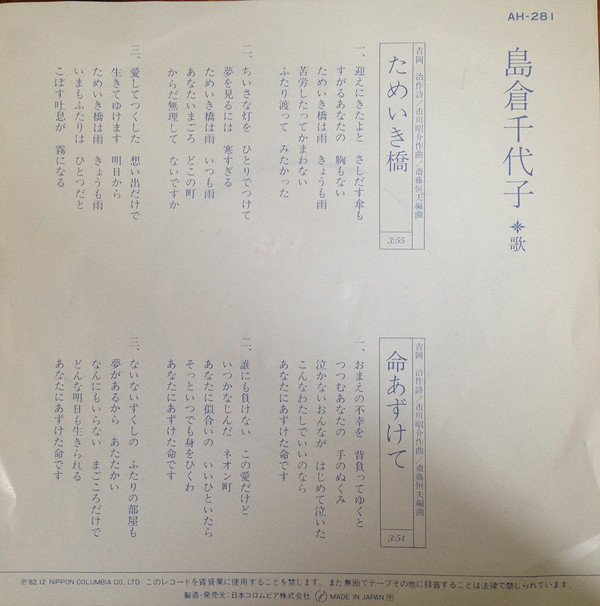 AH-281
島倉千代子 ❈ 歌
ためいき橋
3:55
吉岡 治作詩/市川昭介作曲/斎藤恒夫編曲
一、迎えにきたよと さしだす傘も
すがるあなたの 胸もない
ためいき橋は雨 きょうも雨
苦労したってかまわない
ふたり渡って みたかった
二、ちいさな灯を ひとりでつけて
夢を見るには 寒すぎる
ためいき橋は雨 いつも雨
あなたいまごろ どこの町
からだ無理して ないですか
三、愛してつくした 想い出だけで
生きてゆけます 明日から
ためいき橋は雨 きょうも雨
いまもふたりは ひとつだと
こぼす吐息が 霧になる
命あずけて
3:54
吉岡 治作詩/市川昭介作曲/斎藤恒夫編曲
一、おまえの不幸を 背負ってゆくと
つつむあなたの 手のぬくみ
泣かないおんなが はじめて泣いた
こんなわたしでいいのなら
あなたにあずけた命です
二、誰にも負けない この愛だけど
いつかなじんだ ネオン町
あなたに似合いの いいひといたら
そっといつでも身をひくわ
あなたにあずけた命です
三、ないないずくしの ふたりの部屋も
夢があるから あたたかい
なんにもいらない まごころだけで
どんな明日も生きられる
あなたにあずけた命です
Ⓟ'82.12 NIPPON COLUMBIA CO., LTD. このレコードを賃貸業に使用することを禁じます。また無断でテープその他に録音することは法律で禁じられています。
製造・発売元:日本コロムビア株式会社 MADE IN JAPAN